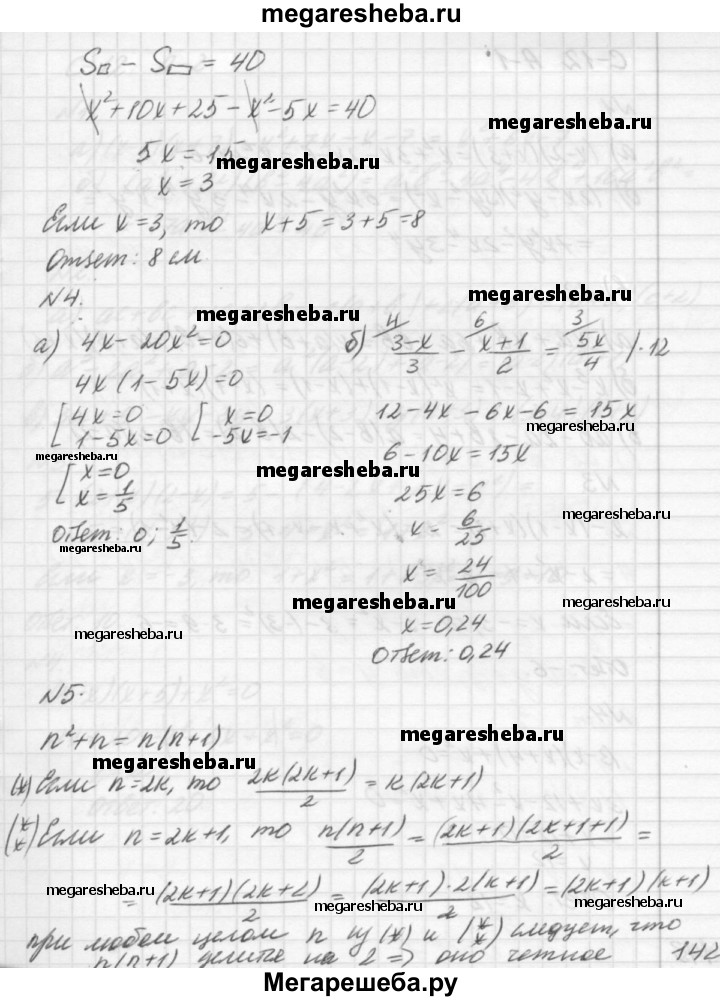 megaresheba.ru
S□ − S▭ = 40
x²+10x+25−x²−5x=40
megaresheba.ru
5x=15
megaresheba.ru
x=3
Если x=3, то x+5=3+5=8
Ответ: 8 см
N4.
megaresheba.ru
megaresheba.ru
а) 4x−20x²=0
б) ⁴/ (3−x)/3 − ⁶/ (x+1)/2 = ³/ 5x/4 |·12
4x(1−5x)=0
[4x=0 [x=0
12−4x−6x−6=15x
1−5x=0 −5x=−1
megaresheba.ru
megaresheba.ru
6−10x=15x
megaresheba.ru
[x=0
x=1/5
25x=6
megaresheba.ru
Ответ: 0; 1/5.
x=6/25
megaresheba.ru
x=24/100
megaresheba.ru
megaresheba.ru
x=0,24
megaresheba.ru
Ответ: 0,24
N5.
n²+n=n(n+1)
megaresheba.ru
megaresheba.ru
(*) Если n=2k, то 2k(2k+1)/2 = k(2k+1)
(**) Если n=2k+1, то n(n+1)/2 = (2k+1)(2k+1+1)/2 =
megaresheba.ru
= (2k+1)(2k+2)/2 = (2k+1)·2(k+1)/2 = (2k+1)(k+1)
megaresheba.ru
megaresheba.ru
при любом целом n из (*) и (**) следует, что
n(n+1) делится на 2 => оно четное
142
Мегарешеба.ру